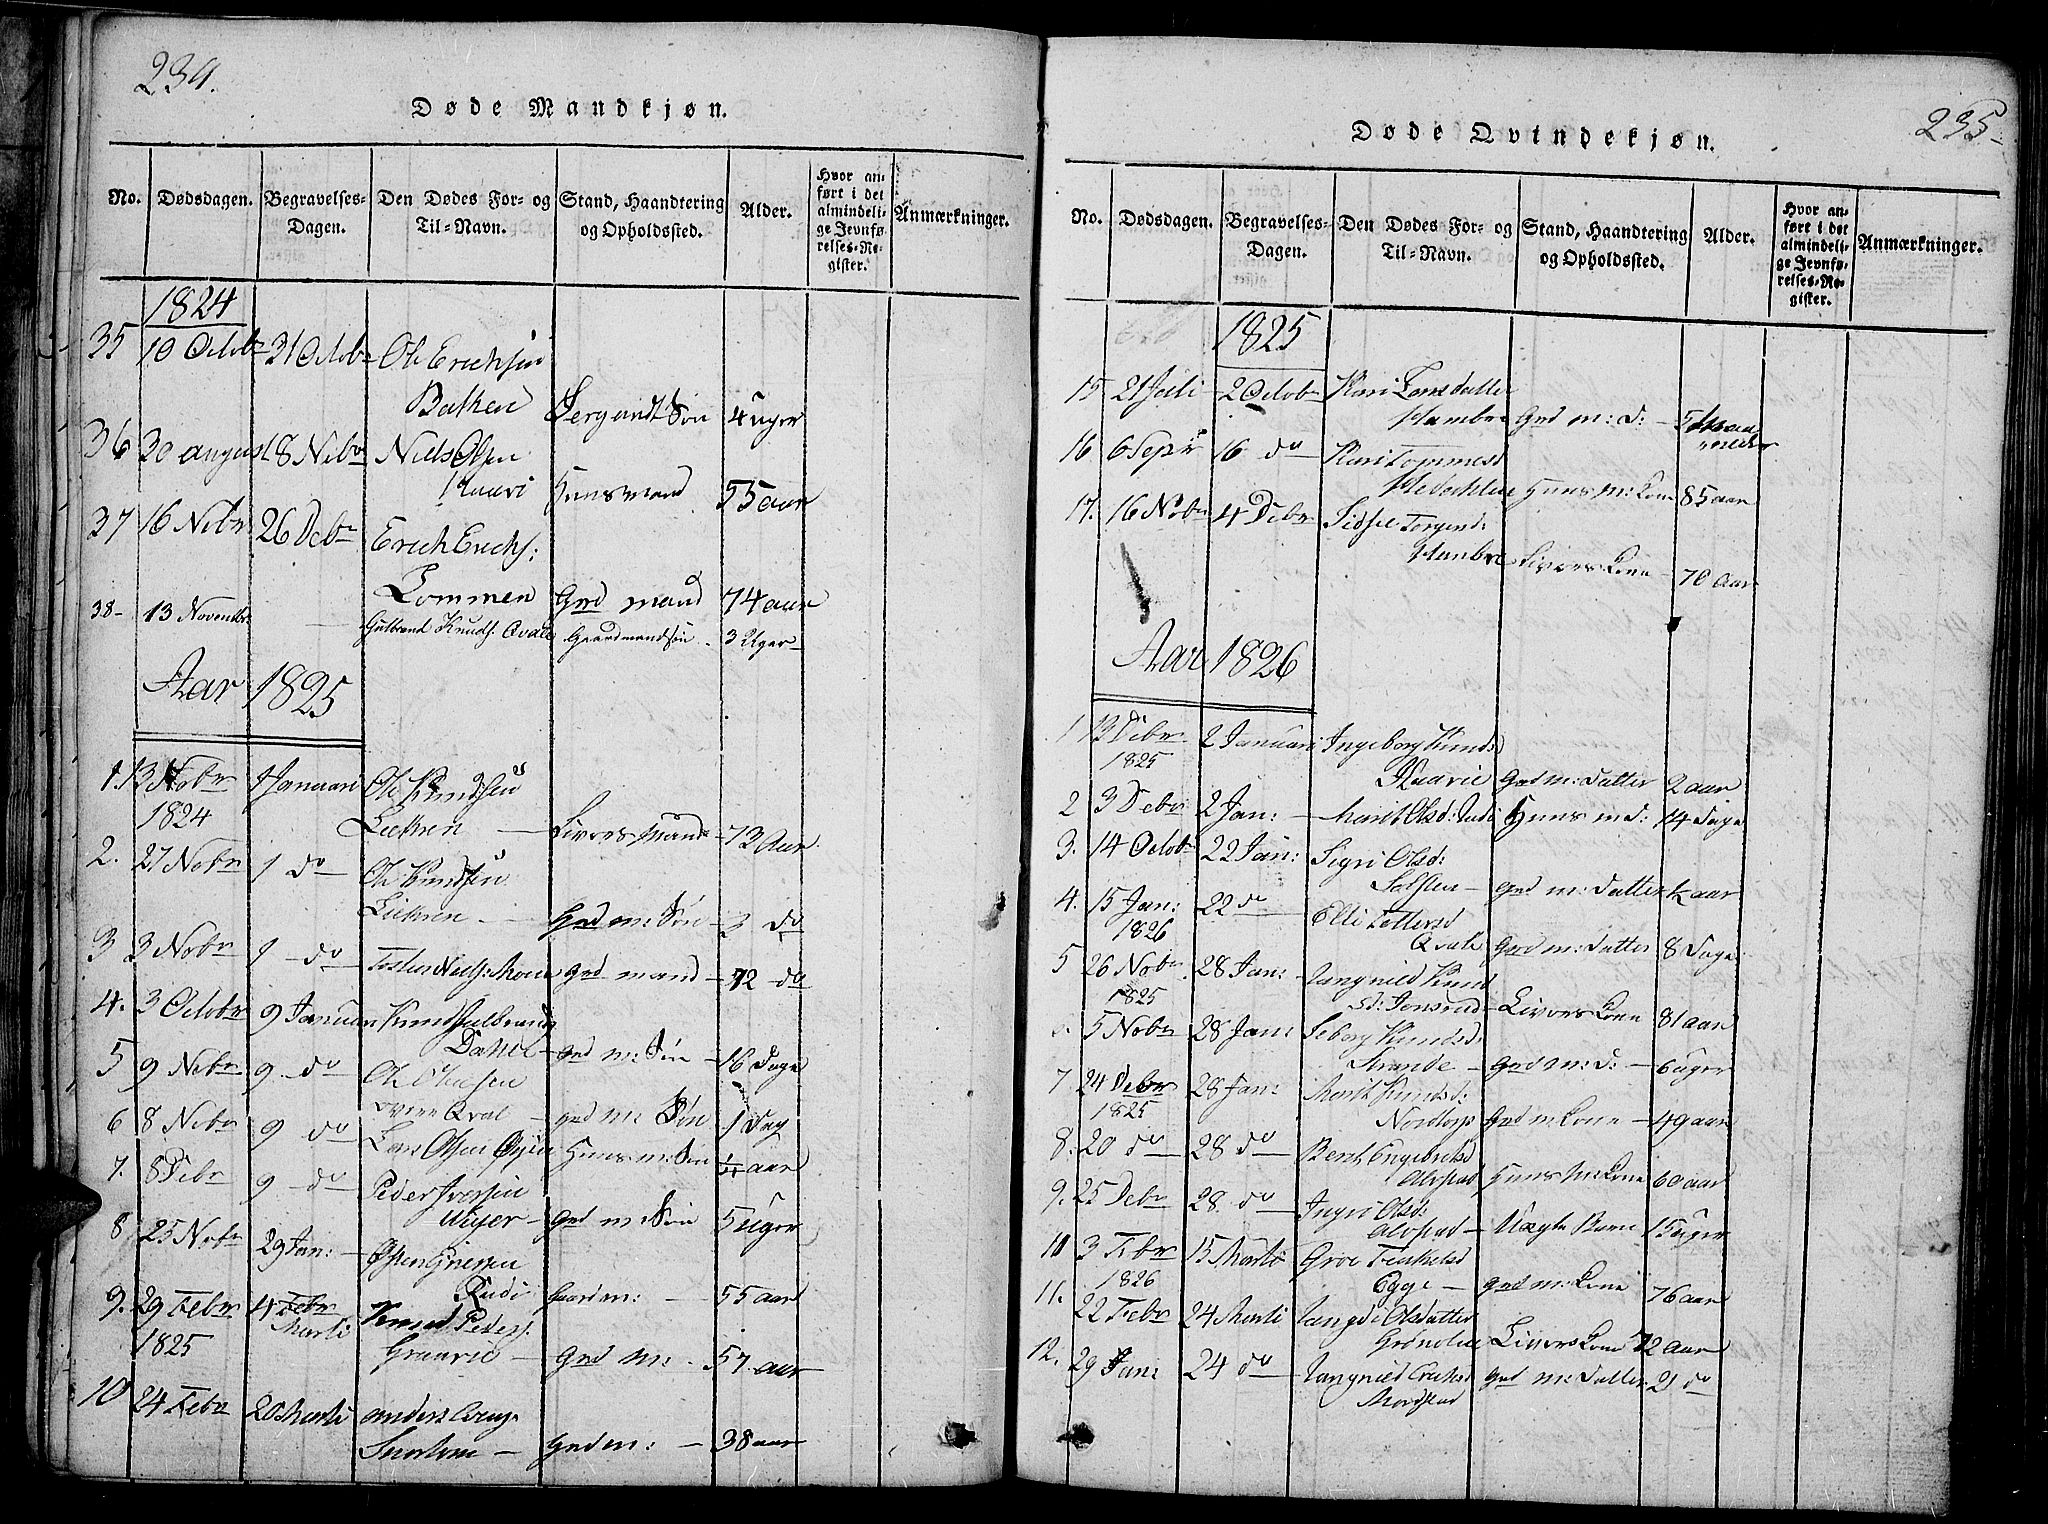 234.
Døde Mandkjøn.
No. Dødsdagen. Begravelses-Dagen. Den Dødes For- og Til-Navn. Stand, Haandtering og Opholdssted. Alder. Hvor anført i det almindelige Jevnførelses-Register. Anmærkninger.
1824
35 10 Octobr 31 Octobr Ole Erichsen
Bakken Sergeandt Søn 4 Uger
36 30 august 18 Nobr Niels Olsen
Huusmand 55 aar
37 16 Nobr 26 Debr Erich Erichs:
Lommen Grd mand 74 aar
38- 13 November Gulbrand Knuds: Qvale Gaardmandsøn 3 Uger
Aar 1825
1. 13 Nobr 1 Januari Ole Knudsen
1824 Liekren Livørs Mand 73 Aar
2. 27 Nobr 1 do Ole Knudsen
Liekren Grd m: Søn 3 do
3 3 Nobr 1 do Tosten Niels: Moen Grd mand 72 do
4. 3 Octobr 9 Januari Knud Gulbrands
Dahle Grd m: Søn 16 Dage
5 9 Nobr 9 do Ole
Qval grd m: Søn 1 Dag
6 8 Nobr 9 do Lars Olsen Huus m: Søn aar
7. 8 Debr 9 do Peder Iversen
Grd m: Søn 5 uger
8 25 Nobr 29 Jan: Østen
Rudi Gaard m: 55 aar
9. 29 Febr 4 Febr Knud Peders:
1825 Marti
Graavie Grd m: 57 aar
10 24 Febr 20 Marti anders
Grd m: 38 aar
235
Døde Qvindekjøn.
No. Dødsdagen. Begravelses-Dagen. Den Dødes For- og Til-Navn. Stand, Haandtering og Opholdssted. Alder. Hvor anført i det almindelige Jevnførelses-Register. Anmærkninger.
1825
15 21 Juli 2 Octobr Kari Larsdatter
Hambre Grd m: d:
16 6 Sepr 16 do Kari Tommesd
Huus m: Kone 85 aar
17. 16 Nobr 4 Debr Sidsel Torgersd:
Hambre Livørs Kone 70 Aar
Aar 1826
1 13 Debr 2 Januari Ingeborg Knuds
1825
Grd m: Datter 2 aar
2 3 Debr 2 Jan: Marit Olsd: Rudi Huus m d: 14 Dage
3. 14 Octobr 22 Jan: Sigri Olsd:
Grd m: Datter aar
4. 15 Jan: 22 do Elli
1826 Qvale Grd m: Datter 8 Dage
5 26 Nobr 28 Jan: Rangnied Knud
1825 sd: Jonsrud Livørs Kone 81 aar
6. 5 Nobr 28 Jan: Seborg Knudsd:
Strande Grd m: d: 6 Uger
7 24 Debr 28 Jan: Marit Knudsd:
1825 Nordtorp Grd m: Kone 49 aar
8. 20 do 28 do Berit Engebretsd
Alvstad Huus m: Kone 60 aar
9. 25 Debr 28 do Ingri Olsd:
Alvstad Uægte Barn 15 Uger
10 3 Febr 15 Martii Groe
1826 Egge grd m: Kone 76 aar
11. 22 Febr 24 Marti Rangdi Olsdatter
Grønolien Livørs Kone 72 Aar
12. 29 Jan: 24 do Rangnied Erichsd Grd m: Datter 2 do